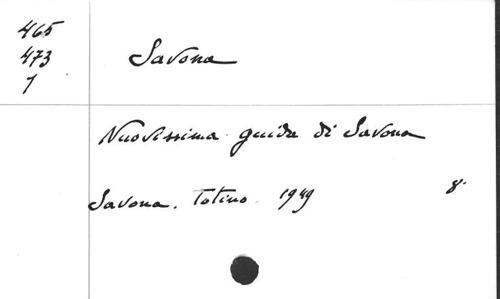 465
473
1
Savona
Nuovissima guida di Savona
Savona. Totino. 1949 8°